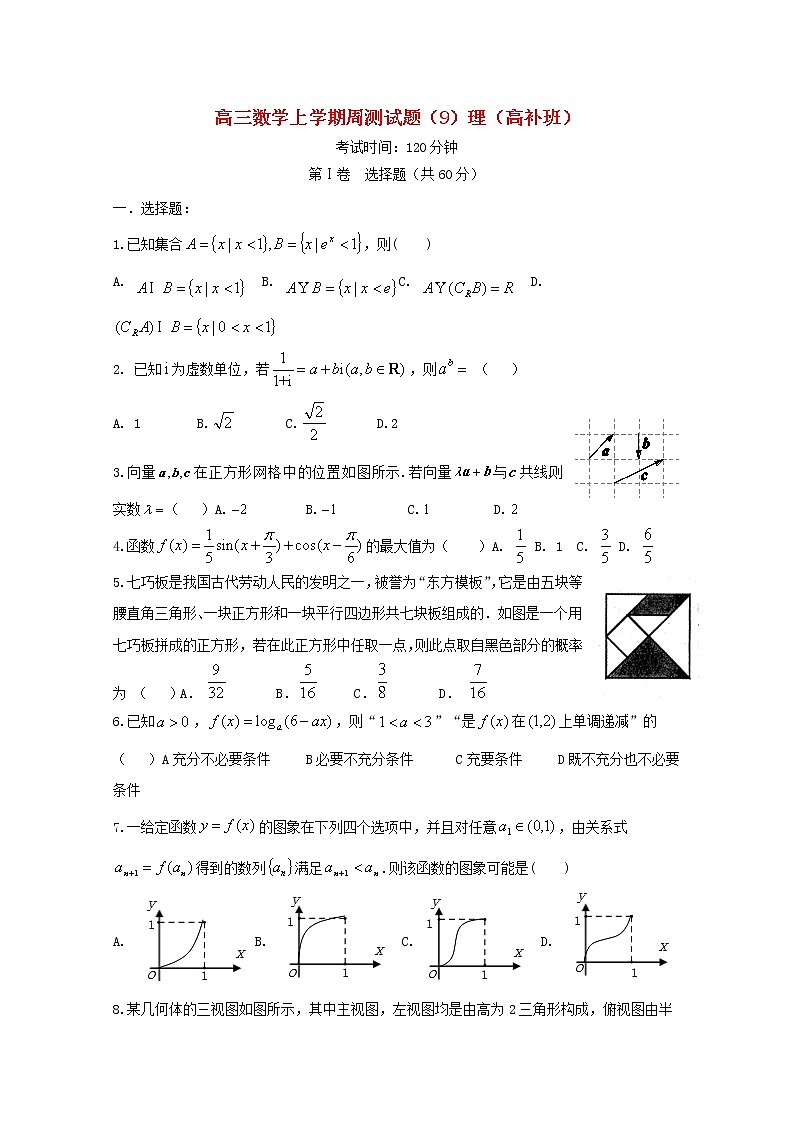 高三数学上学期周测试题（9）理（高补班）
考试时间：120分钟
第Ⅰ卷 选择题（共60分）
一．选择题：
1.已知集合 A={x|x<1},B={x|e^x<1}，则( )
A. AI B={x|x<1} B. AY B={x|x<e} C. AY(C_R B)=R D.
(C_R A)I B={x|0<x<1}
2. 已知i为虚数单位，若 1/(1+i)=a+bi(a,b∈R)，则a^b= （ ）
A. 1 B. √2 C. √2/2 D.2
a b c
3.向量a,b,c在正方形网格中的位置如图所示.若向量λa+b与c共线则
实数λ=（ ）A.−2 B.−1 C.1 D.2
4.函数f(x)=1/5 sin(x+π/3)+cos(x−π/6)的最大值为（ ）A. 1/5 B. 1 C. 3/5 D. 6/5
5.七巧板是我国古代劳动人民的发明之一，被誉为“东方模板”，它是由五块等
腰直角三角形、一块正方形和一块平行四边形共七块板组成的．如图是一个用
七巧板拼成的正方形，若在此正方形中任取一点，则此点取自黑色部分的概率
为 （ ）A. 9/32 B. 5/16 C. 3/8 D. 7/16
6.已知a>0，f(x)=log_a(6−ax)，则“1<a<3”“是f(x)在(1,2)上单调递减”的
（ ）A充分不必要条件 B必要不充分条件 C充要条件 D既不充分也不必要
条件
7.一给定函数y=f(x)的图象在下列四个选项中，并且对任意a_1∈(0,1)，由关系式
a_{n+1}=f(a_n)得到的数列{a_n}满足a_{n+1}<a_n.则该函数的图象可能是( )
A. y 1 O 1 x B. y 1 O 1 x C. y 1 O 1 x D. y 1 O 1 x
8.某几何体的三视图如图所示，其中主视图，左视图均是由高为2三角形构成，俯视图由半